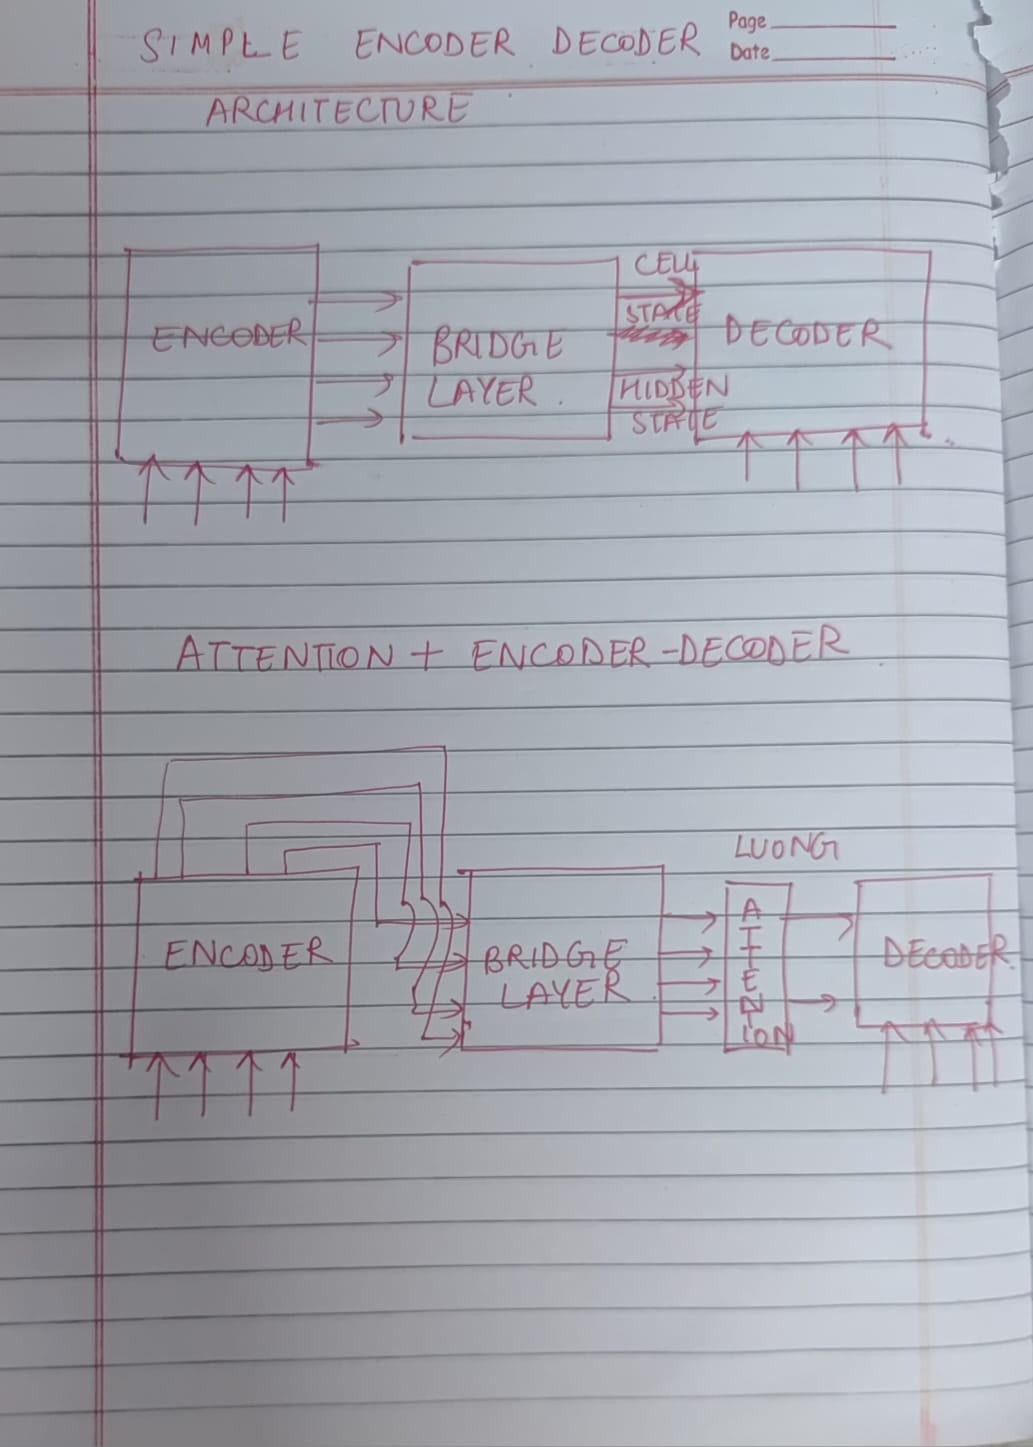 Page
SIMPLE ENCODER DECODER
Date
ARCHITECTURE
ENCODER
BRIDGE
LAYER .
CELL
STATE
HIDDEN
STATE
DECODER
ATTENTION + ENCODER-DECODER
LUONG
ENCODER
BRIDGE
LAYER
A
T
T
E
N
TION
DECODER